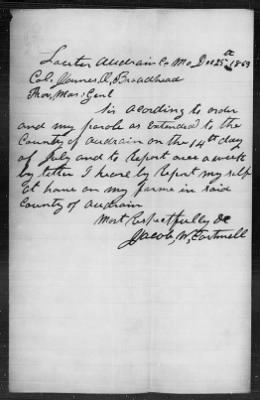 Audrain Co Mo Dec 25th 1863
Col. James, O, Broadhead
Prov, Mar, Genl
Sir Acording to order
and my parole as extended to the
County of Audrain on the 14th day
of July and to Report once a week
by letter I heare by Report my self
at home on my farme in said
County of Audrain
Most Respectfully &c
Jacob, W, Cartmell